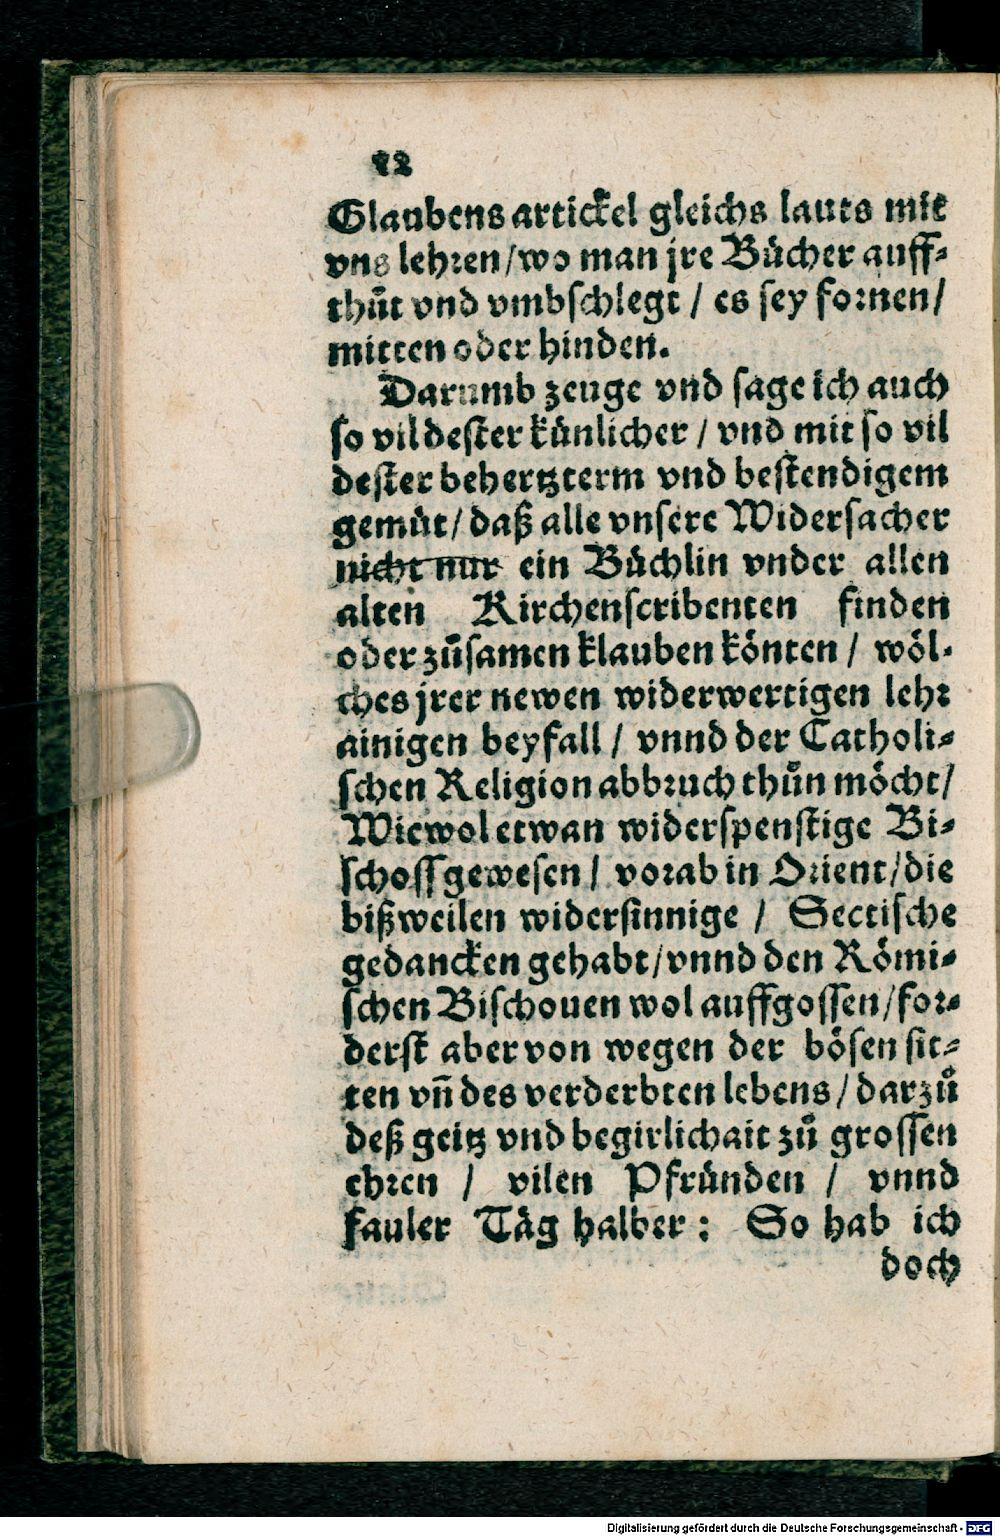 12
Glaubens artickel gleichs lauts mit
vns lehren/wo man jre Bücher auff⸗
thůt vnd vmbschlegt / es sey fornen/
mitten oder hinden.
Darumb zeuge vnd sage ich auch
so vil dester künlicher / vnd mit so vil
dester behertzterm vnd bestendigem
gemüt/ daß alle vnsere Widersacher
nicht nur ein Büchlin vnder allen
alten Kirchenscribenten finden
oder zůsamen klauben könten / wöl⸗
ches jrer newen widerwertigen lehr
ainigen beyfall / vnnd der Catholi⸗
schen Religion abbruch thůn möcht/
Wiewol etwan widerspenstige Bi⸗
schoff gewesen / vorab in Orient/die
bißweilen widersinnige / Sectische
gedancken gehabt/vnnd den Römi⸗
schen Bischouen wol auffgossen/for⸗
derst aber von wegen der bösen sit⸗
ten vn̄ des verderbten lebens/ darzů
deß geitz vnd begirlichait zů grossen
ehren / vilen Pfründen / vnnd
fauler Täg halber : So hab ich
doch
Digitalisierung gefördert durch die Deutsche Forschungsgemeinschaft - DFG